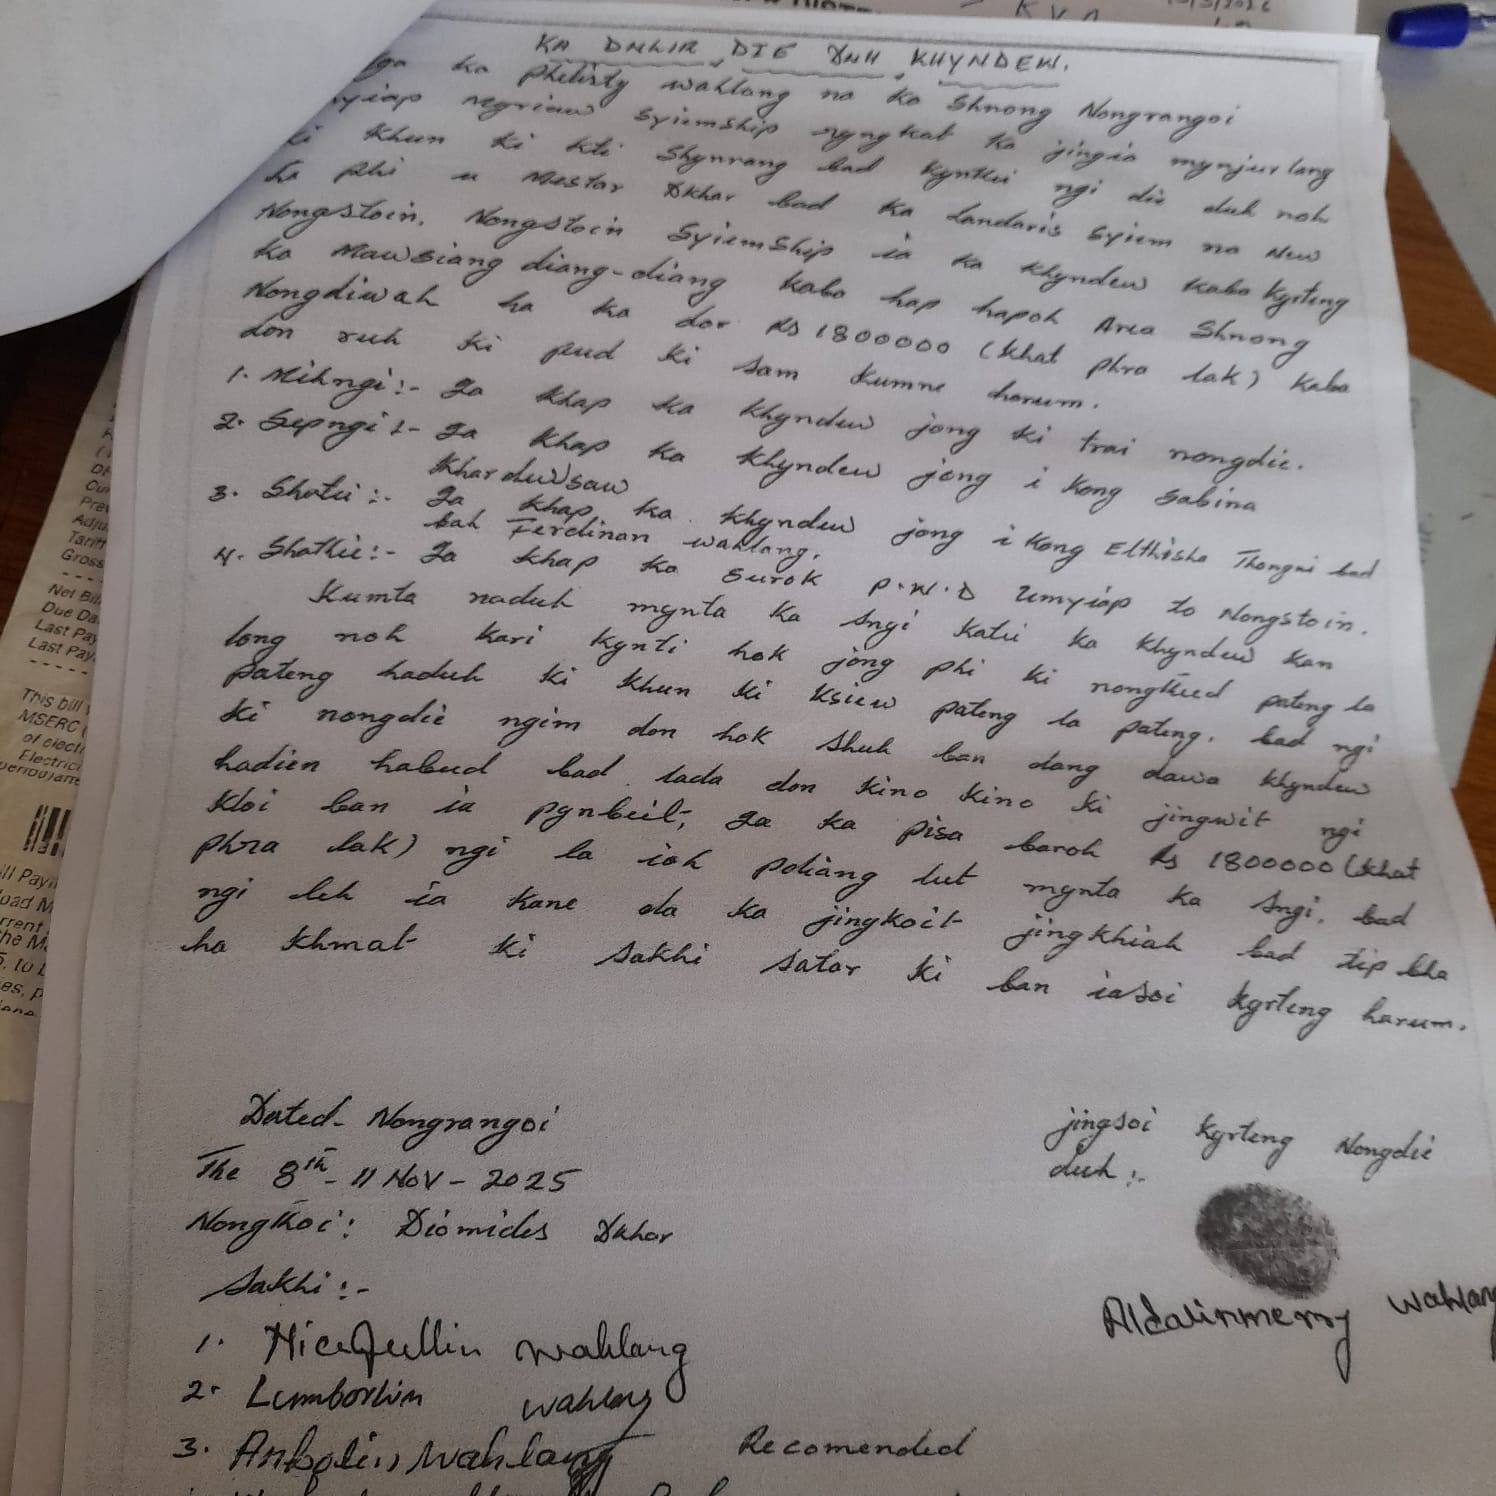 KA DULIR DIE DUH KHYNDEW.
nga ka Philisty wahlang na ka Shnong Nongrangoi
Syiemship ngngkat ka jingia mynjur lang
ki khun ki kti Shynrang bad kynthei ngi die duh noh
ha phi u Mestar Dkhar bad ka Landaris Syiem na New
Nongstoin, Nongstoin Syiemship ia ka khyndew kaba kyrteng
ka Mawsiang diang-diang kaba hap hapoh Area Shnong
Nongdiwah ha ka dor Rs 1800000 (khat phra lak) kaba
don ruh ki pud ki sam kumne harum.
1. Mihngi:- Ia khap ka khyndew jong ki trai nongdie.
2. Sepngi:- Ia khap ka khyndew jong i Kong Sabina
Khardewsaw
3. Shatei:- Ia khap ka khyndew jong i Kong Elthisha Thongni bad
bah Ferdinan wahlang.
4. Shathie:- Ia khap ka surok P.W.D Umyiap to Nongstoin.
Kumta naduh mynta ka sngi katei ka khyndew kan
long noh kari kynti hok jong phi ki nongthied pateng la
pateng haduh ki khun ki ksiew pateng la pateng. bad ngi
ki nongdie ngim don hok shuh ban dang dawa khyndew
hadien habud bad lada don kino kino ki jingwit ngi
kloi ban ia pynbeit, Ia ka pisa baroh Rs 1800000 (khat
phra lak) ngi la ioh poliang lut mynta ka sngi. bad
ngi leh ia kane da ka jingkoit jingkhiah bad tip bha
ha khmat ki sakhi satar ki ban iasoi kyrteng harum.
Dated - Nongrangoi
The 8th - 11 Nov - 2025
Nongthoi: Diomides Dkhar
Sakhi:-
jingsoi kyrteng Nongdie
duh:-
Aldalinmerry Wahlang
1. wahlang
2. Lumborlin wahlang
3. Wahlang
Recomended
This bill
MSERC
of electr
Electric
Net Bill
Due Da
Last Pay
Last Pay
Adju
Tariff
Gross